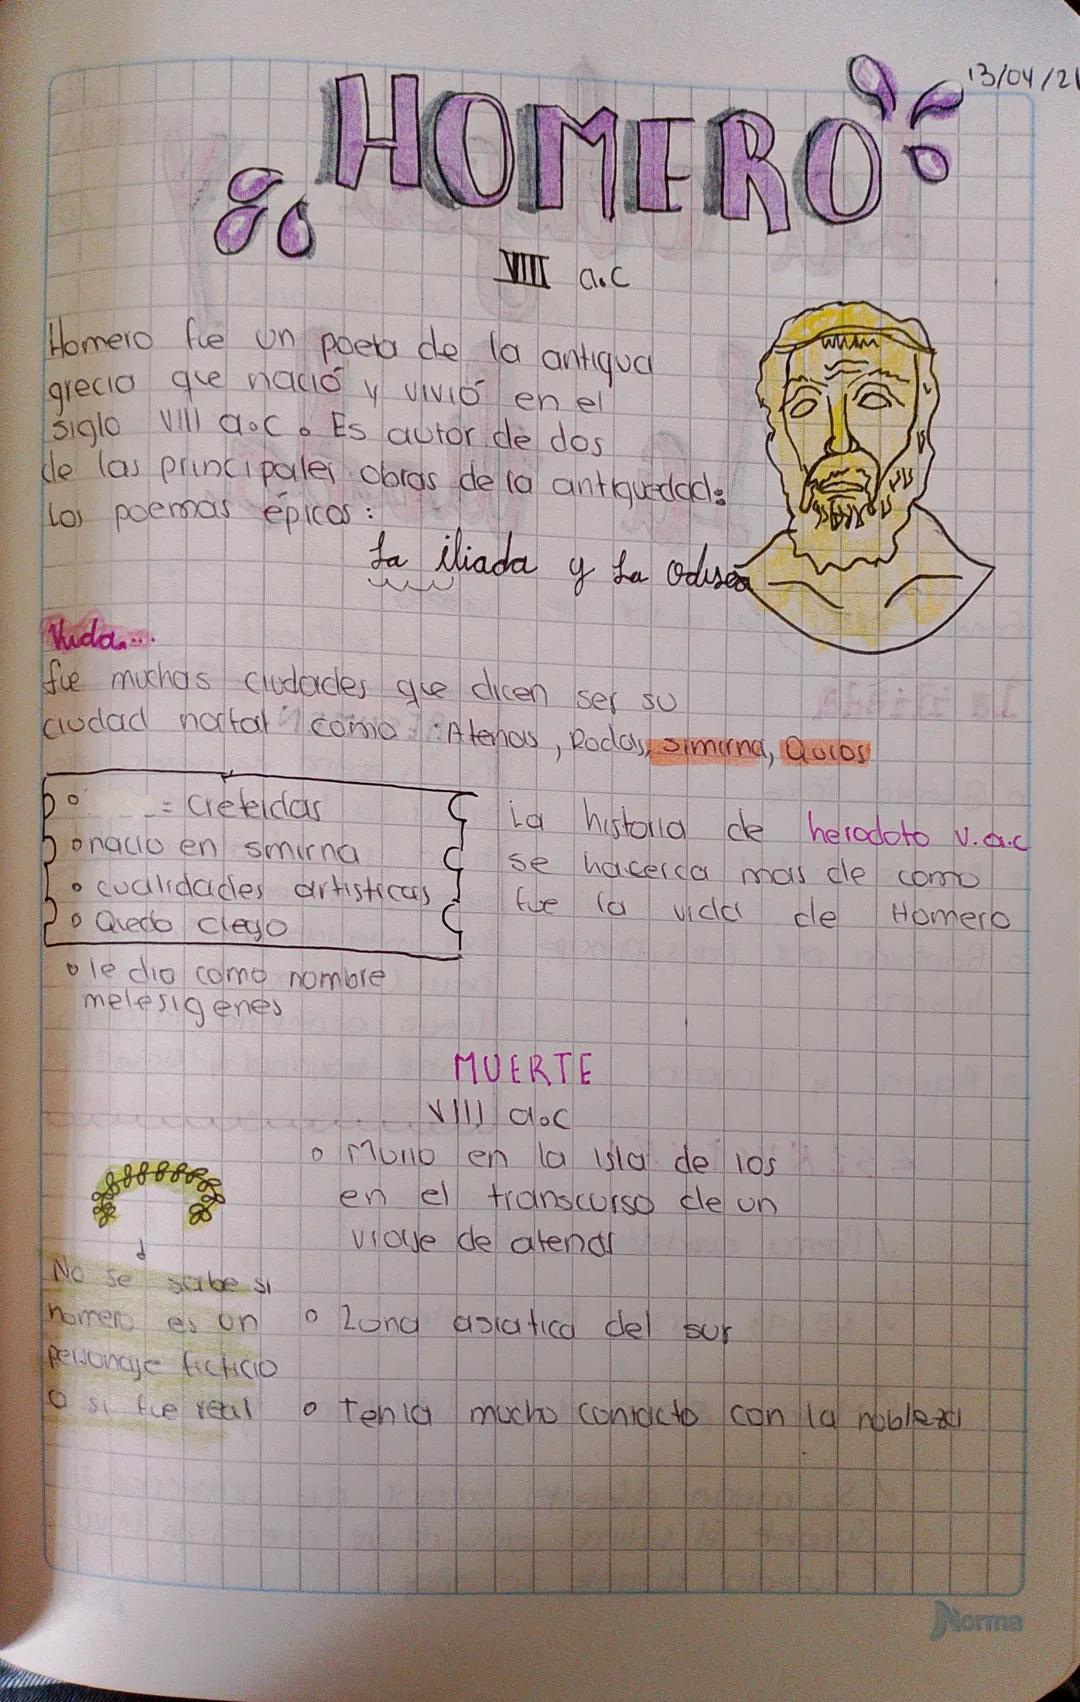 13/04/21
HOMERO
VIII a.c
Homero fue un poeta de la antigua
grecia que nació y vivió en el
siglo VIII a.c. Es autor de dos
de las principales obras de la antiguedad:
Los poemas épicos:
La iliada y La odisea
Vida...
fue muchas ciudades que dicen ser su
ciudad nartal como: Atenas, Rodas, simirna, Quios
= Creteidas
nacio en smirna
cualidades artisticas
Quedo ciego
le dio como nombre
melesigenes
La historia de herodoto V.a.c
se hacerca mas de como
fue la vida de Homero
MUERTE
VIII a.c
Murio en la isla de ios
en el transcurso de un
viaje de atenas
Zona asiatica del sur
Tenia mucho contacto con la nobleza
No se sabe si
homero es un
personaje ficticio
o si fue real
Norma